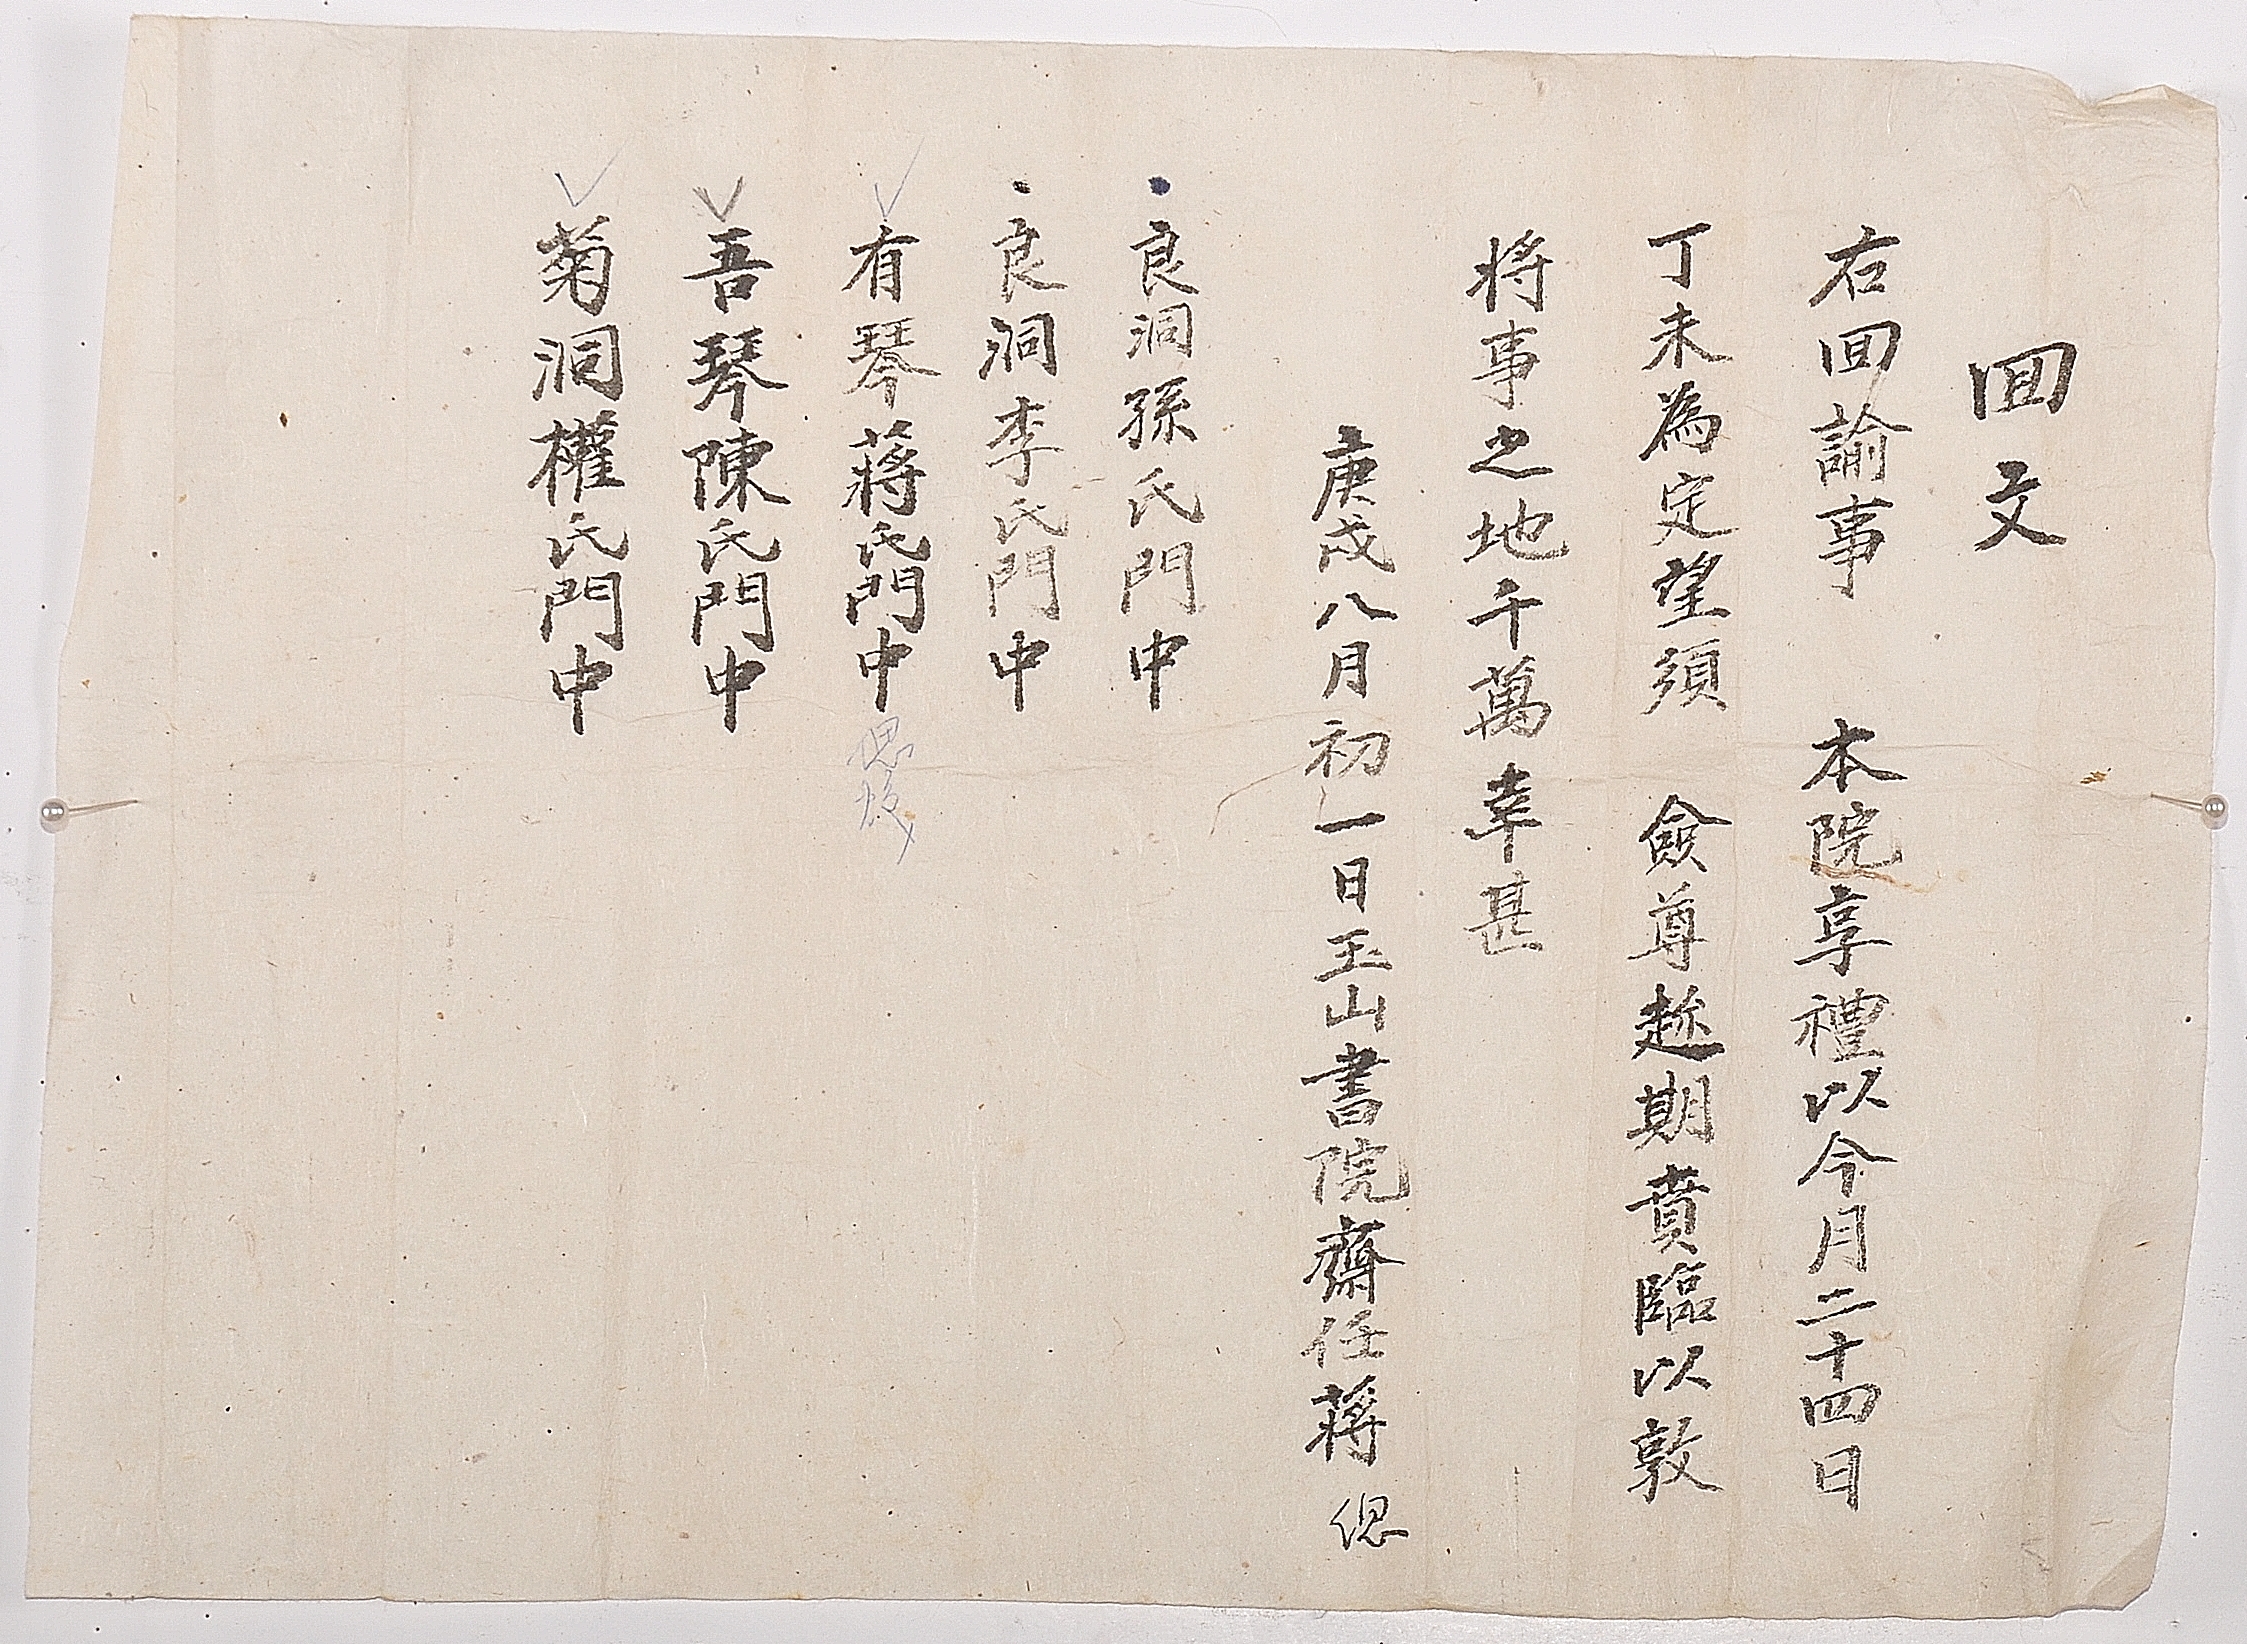 回文
右回諭事 本院享禮以今月二十四日
丁未為定望須 僉尊趁期賁臨以敦
將事之地千萬幸甚
庚戌八月初一日玉山書院齋任蔣 偲
良洞孫氏門中
良洞李氏門中
有琴蔣氏門中
吾琴陳氏門中
菊洞權氏門中